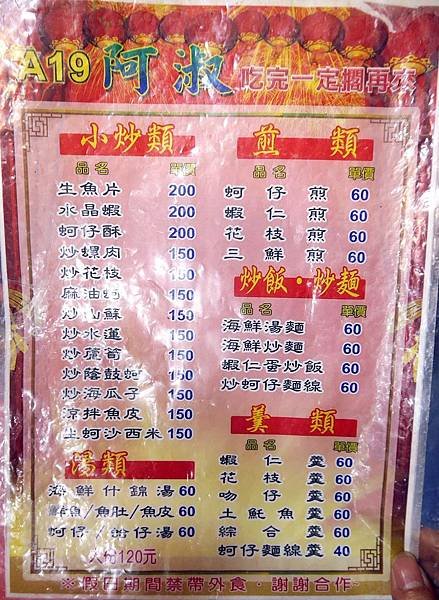 A19 阿淑 吃完一定擱再來
小炒類
品名 單價
生魚片 200
水晶蝦 200
蚵仔酥 200
炒螺肉 150
炒花枝 150
麻油 150
炒山蘇 150
炒水蓮 150
炒蘆筍 150
炒蔭鼓蚵 150
炒海瓜子 150
涼拌魚皮 150
生蚵沙西米 150
湯類
海鮮什錦湯 60
鮮魚/魚肚/魚皮 60
蚵仔/蛤仔湯 60
大份120元
煎類
品名 單價
蚵仔煎 60
蝦仁煎 60
花枝煎 60
三鮮煎 60
炒飯・炒麵
品名 單價
海鮮湯麵 60
海鮮炒麵 60
蝦仁蛋炒飯 60
炒蚵仔麵線 60
羹類
品名 單價
蝦仁羹 60
花枝羹 60
吻仔羹 60
土魠魚羹 60
綜合羹 60
蚵仔麵線羹 40
※假日期間禁帶外食・謝謝合作~